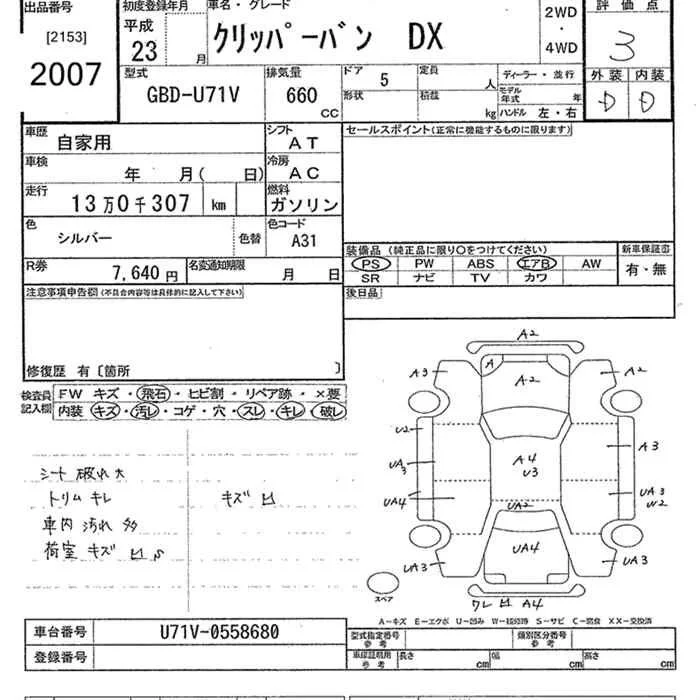 出品番号 初度登録年月 車名・グレード 評価点
[2153] 平成 2WD
2007 23 月 クリッパーバン DX ・ 3
4WD
型式 排気量 ドア 5 定員 人 ディーラー・並行 外装 内装
GBD-U71V 660 CC 形状 積載 kg モデル年式 年 D D
ハンドル 左・右
車歴 自家用 シフト AT セールスポイント(正常に機能するものに限ります)
車検 年 月( 日) 冷房 AC
走行 13万0千307 km 燃料 ガソリン
色 シルバー 色替 色コード A31
装備品(純正品に限り○をつけてください) 新車保証書
R券 7,640円 名変通知期限 月 日 PS PW ABS エアB AW 有・無
SR ナビ TV カワ
注意事項申告欄(不具合内容等は具体的に記入して下さい) 後日品
修復歴 有〔箇所 〕
検査員記入欄 FW キズ・飛石・ヒビ割・リペア跡・×要
内装・キズ・汚レ・コゲ・穴・スレ・キレ・破レ
シート 破れ 大
トリム キレ キズ 凹
車内 汚れ 多
荷室 キズ 凹
A2
A3 A A2 A2
U2
UA3 A4 U3 A3
UA4 UA2 UA3 W2
UA3 UA4 UA3
スペア
ワレ 凹 A4
A-キズ E-エクボ U-凹み W-板金波 S-サビ C-腐食 XX-交換済
車台番号 U71V-0558680 型式指定番号 参考 類別区分番号 参考
登録番号 車庫証明用 参考 長さ cm 幅 cm 高さ cm